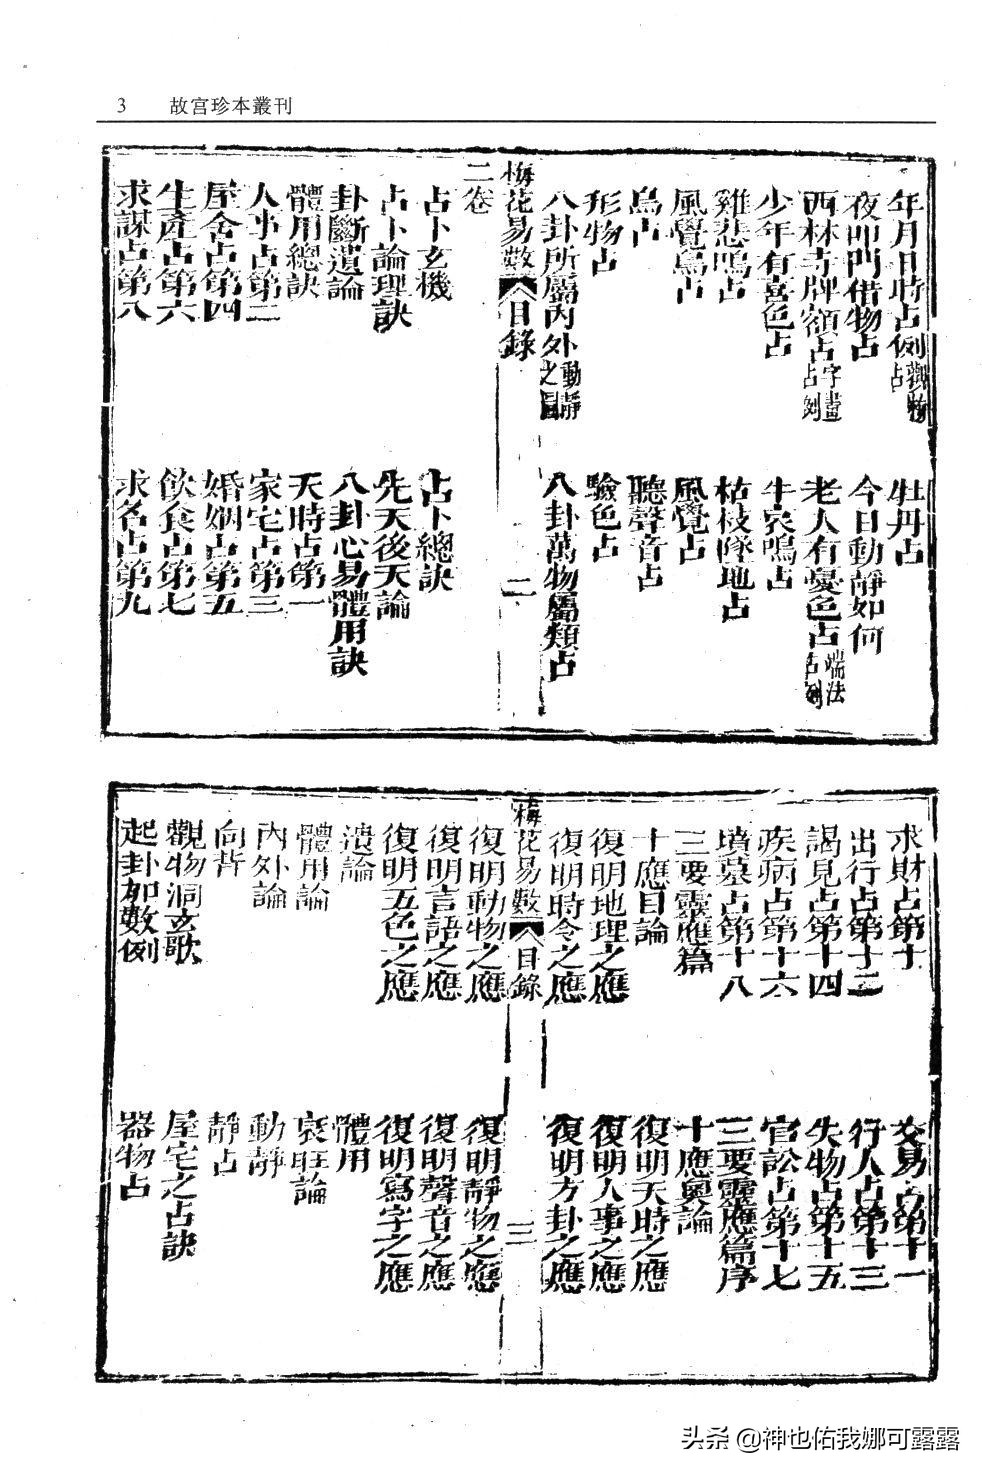 3 故宮珍本叢刊
年月日時占例 觀物占 牡丹占
夜叩門借物占 今日動靜如何
西林寺牌額占 字畫占例 老人有憂色占 端法占例
少年有喜色占 牛哀鳴占
雞悲鳴占 枯枝墜地占
風覺鳥占 風覺占
鳥占 聽聲音占
形物占 驗色占
八卦所屬內外動靜之圖 八卦萬物屬類占
梅花易數 目錄 二
二卷
占卜玄機 占卜總訣
占卜論理訣 先天後天論
卦斷遺論 八卦心易體用訣
體用總訣 天時占第一
人事占第二 家宅占第三
屋舍占第四 婚姻占第五
生產占第六 飲食占第七
求謀占第八 求名占第九
求財占第十 交易占第十一
出行占第十二 行人占第十三
謁見占第十四 失物占第十五
疾病占第十六 官訟占第十七
墳墓占第十八 三要靈應篇序
三要靈應篇 十應奧論
十應目論 復明天時之應
復明地理之應 復明人事之應
復明時令之應 復明方卦之應
梅花易數 目錄 三
復明動物之應 復明靜物之應
復明言語之應 復明聲音之應
復明五色之應 復明寫字之應
遺論 體用
體用論 衰旺論
內外論 動靜
向背 靜占
觀物洞玄歌 屋宅之占訣
起卦加數例 器物占
头条 @神也佑我娜可露露